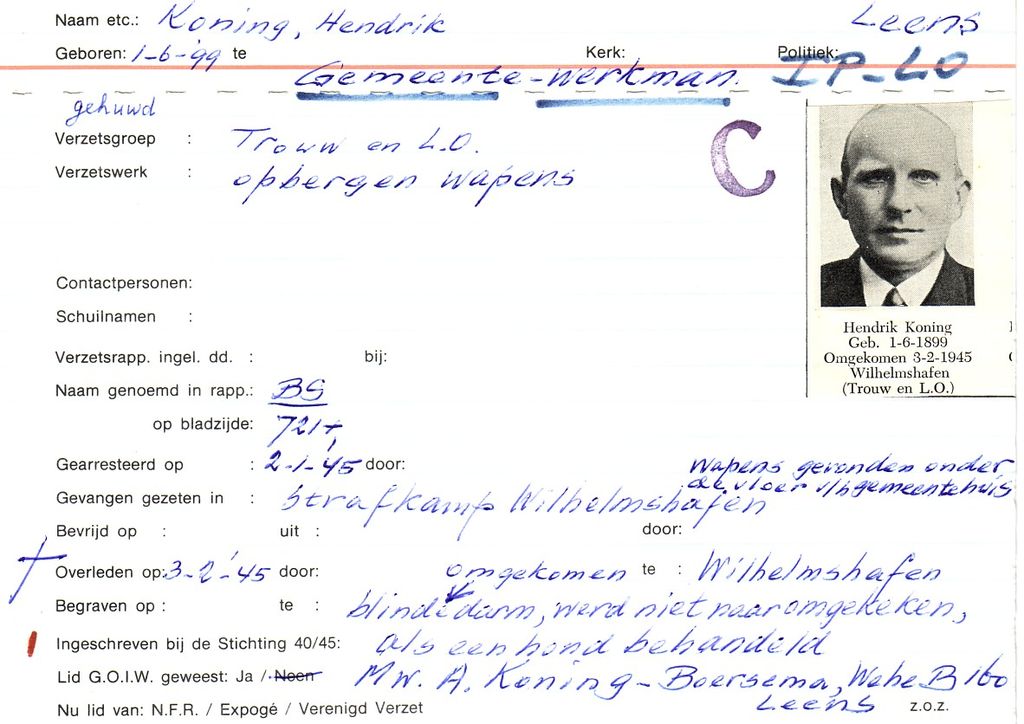 Naam etc.: Koning, Hendrik Leens
Geboren: 1-6-99 te Kerk: Politiek:
Gemeente-werkman. IP-LO
gehuwd
Verzetsgroep : Trouw en L.O.
C
Verzetswerk : opbergen wapens
Contactpersonen:
Schuilnamen :
Hendrik Koning
Geb. 1-6-1899
Omgekomen 3-2-1945
Wilhelmshafen
(Trouw en L.O.)
Verzetsrapp. ingel. dd. : bij:
Naam genoemd in rapp.: BS
op bladzijde: 721+
Gearresteerd op : 2-1-'45 door: wapens gevonden onder
de vloer v/h gemeentehuis
Gevangen gezeten in : Strafkamp Wilhelmshafen
Bevrijd op : uit : door:
Overleden op: 3-2-'45 door: omgekomen te : Wilhelmshafen
Begraven op : te : blindedarm, werd niet naar omgekeken,
Ingeschreven bij de Stichting 40/45: als een hond behandeld
Lid G.O.I.W. geweest: Ja / Neen Mw. A. Koning-Boersema, Wehe B 160
Leens
Nu lid van: N.F.R. / Expogé / Verenigd Verzet z.o.z.